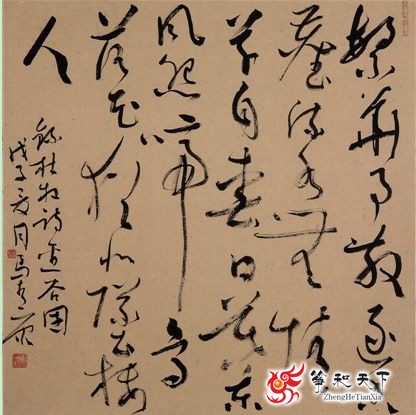 繁華事散逐香
塵流水無情
草自春日暮東
風怨啼鳥
落花猶似墜樓
人
錄杜牧詩金谷園
戊子夏月馬
筝和天下
ZhengHeTianXia